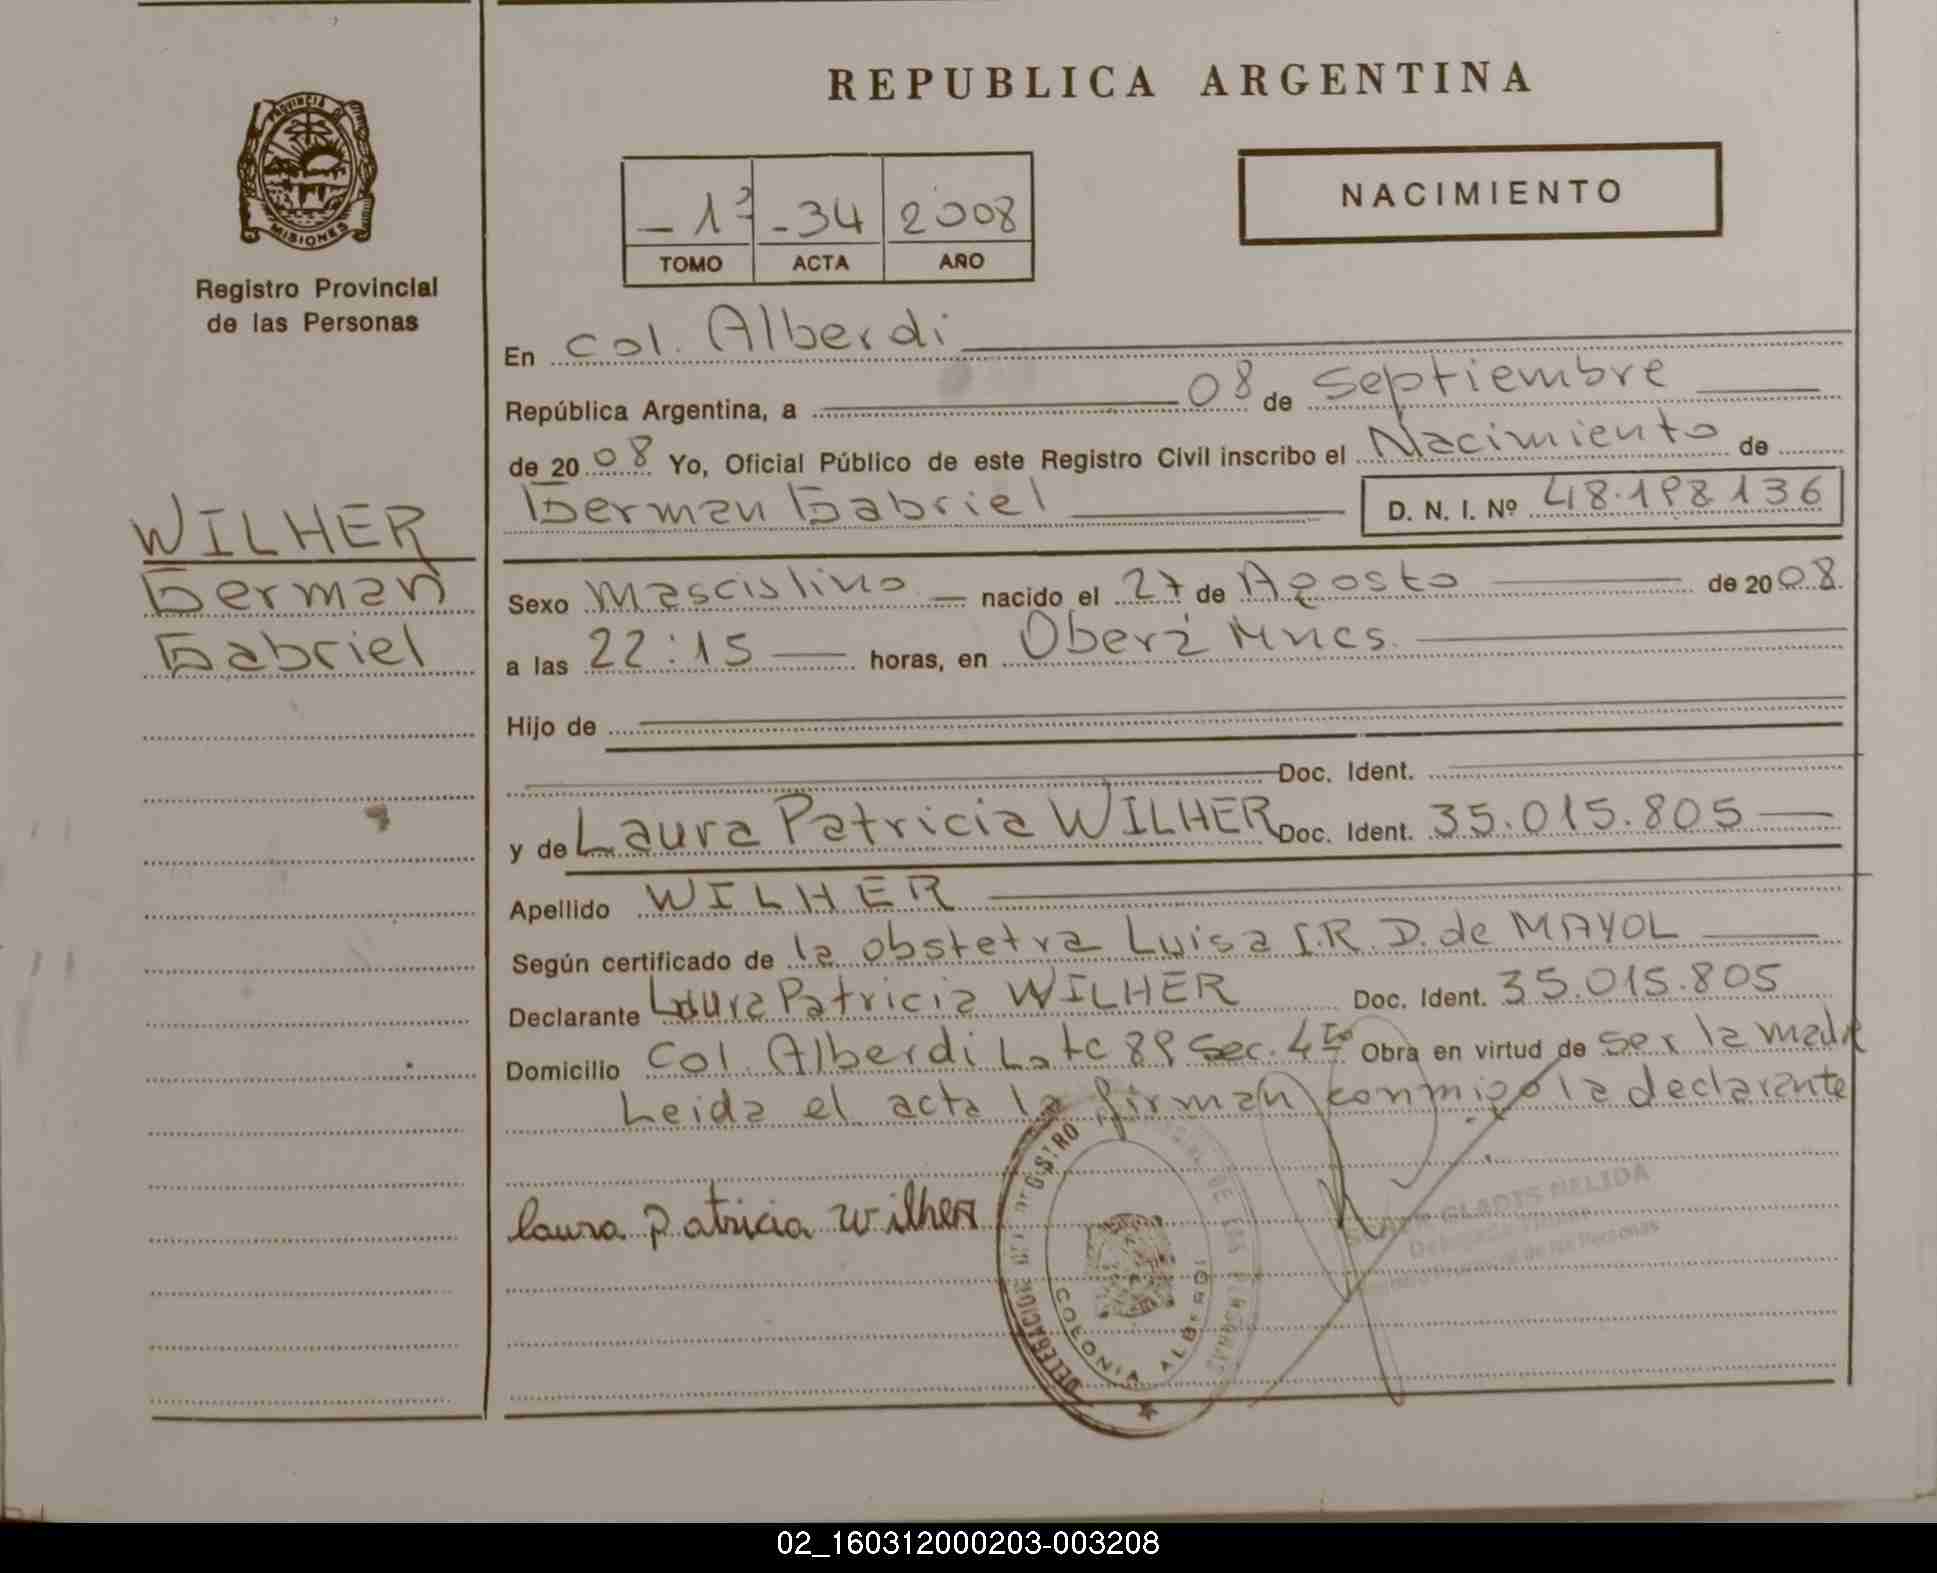 REPUBLICA ARGENTINA
PROVINCIA DE
MISIONES
Registro Provincial
de las Personas
NACIMIENTO
- 1º - 34 2008
TOMO ACTA AÑO
En Col. Alberdi
República Argentina, a 08 de Septiembre
de 2008 Yo, Oficial Público de este Registro Civil inscribo el Nacimiento de
German Gabriel D. N. I. Nº 48.198.136
WILHER
German
Gabriel
Sexo Masculino nacido el 27 de Agosto de 2008
a las 22:15 horas, en Oberá Mnes.
Hijo de
Doc. Ident.
y de Laura Patricia WILHER Doc. Ident. 35.015.805
Apellido WILHER
Según certificado de la obstetra Luisa I.R.D. de MAYOL
Declarante Laura Patricia WILHER Doc. Ident. 35.015.805
Domicilio Col. Alberdi Lote 89 Sec. 4ta Obra en virtud de ser la madre
Leida el acta la firman conmigo la declarante
Laura Patricia Wilher
DELEGACION DEL REGISTRO DE LAS PERSONAS
COLONIA ALBERDI
GLADIS NELIDA
de las Personas
02_160312000203-003208